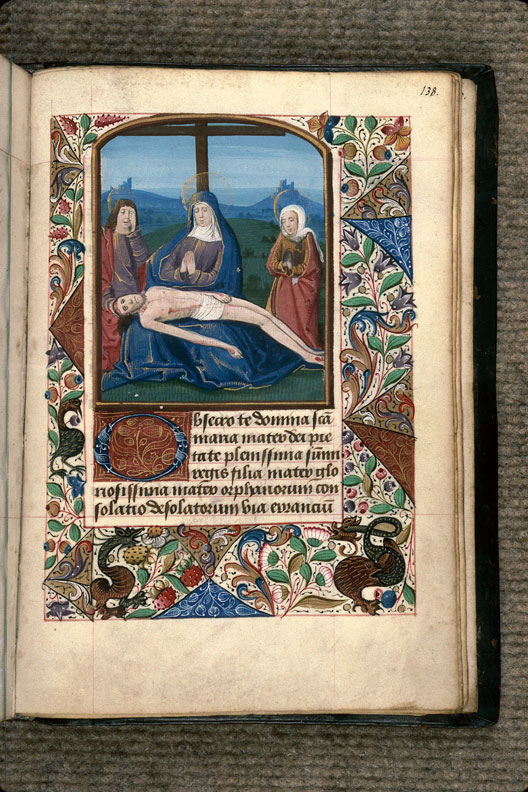 138.
Obsecro te domina scā
maria mater dei pie
tate plenissima summi
regis filia mater glo
riosissima mater orphanorum con
solatio desolatorum via erranciū